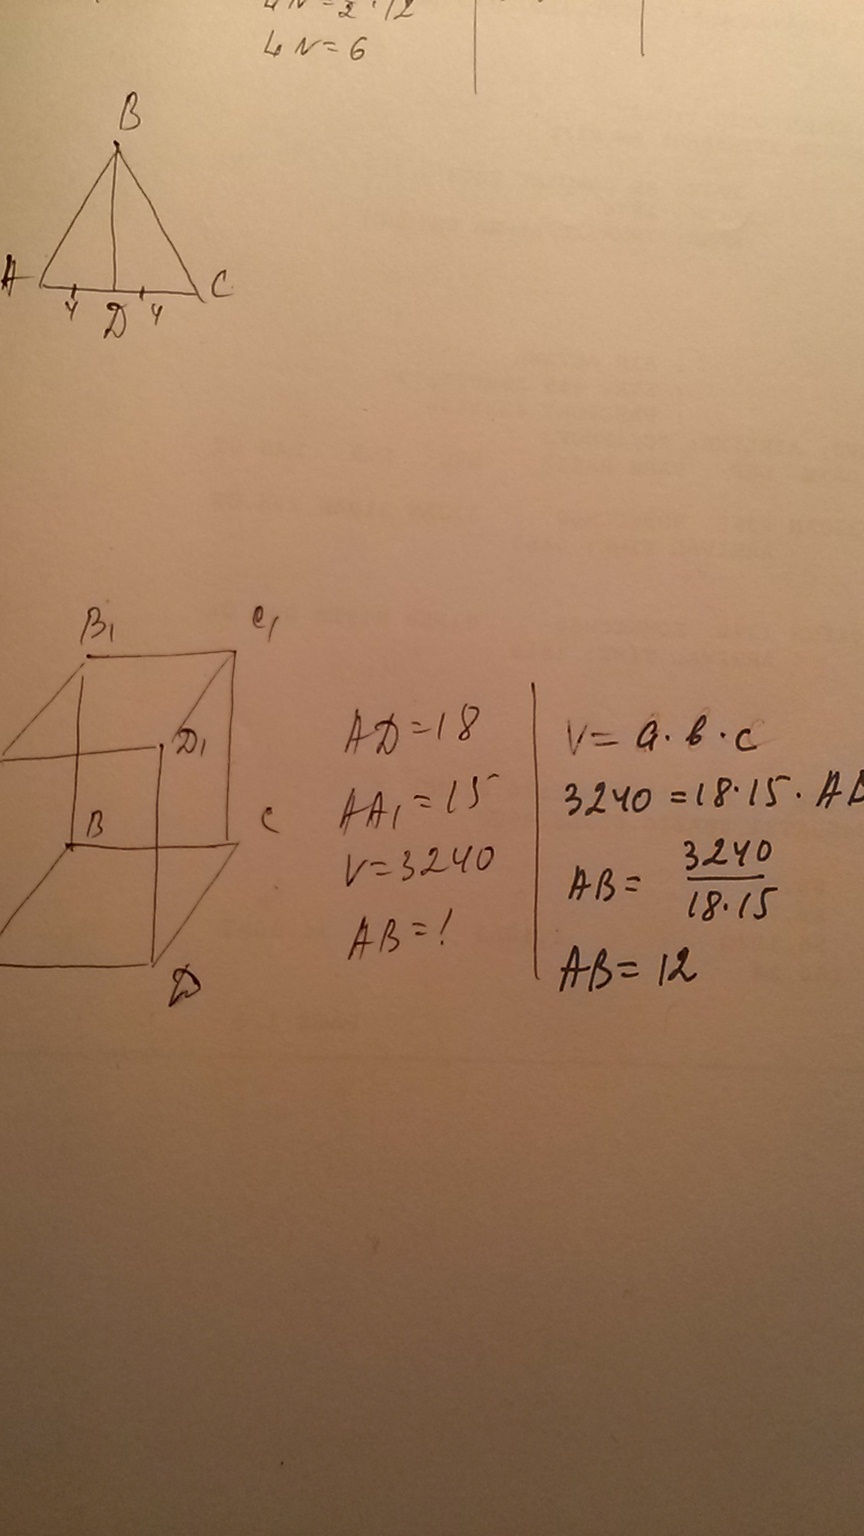 4N=6
B
A
C
4 D 4
B₁ C₁
D₁
B C
D
AD=18
AA₁=15
V=3240
AB=!
V=a·b·c
3240=18·15·AB
AB= 3240
18·15
AB=12